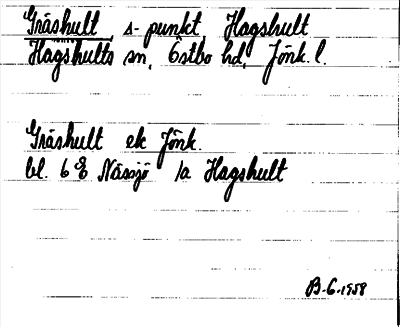 Gräshult, s-punkt, Hagshult
Hagshults sn, Östbo hd, Jönk. l.
Gräshult ek Jönk.
bl. 6 E Nässjö 1a Hagshult
B-G-1958